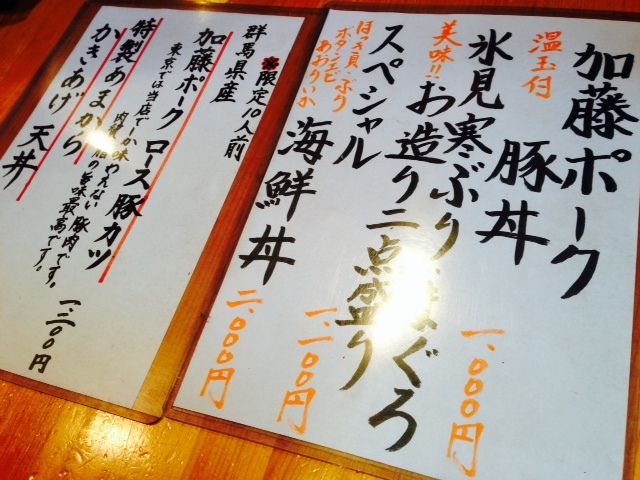 加藤ポーク
豚丼
温玉付
一、〇〇〇円
氷見寒ぶり
まぐろ
お造り二点盛り
美味!!
一、一〇〇円
スペシャル
海鮮丼
ほっき貝・ぶり
ボタンエビ
あおりいか
二、〇〇〇円
限定10人前
群馬県産
加藤ポーク ロース豚カツ
東京では当店でしか味わえない豚肉です。
肉質
脂の旨味最高です。
特製あまから
かきあげ天丼
一、三〇〇円